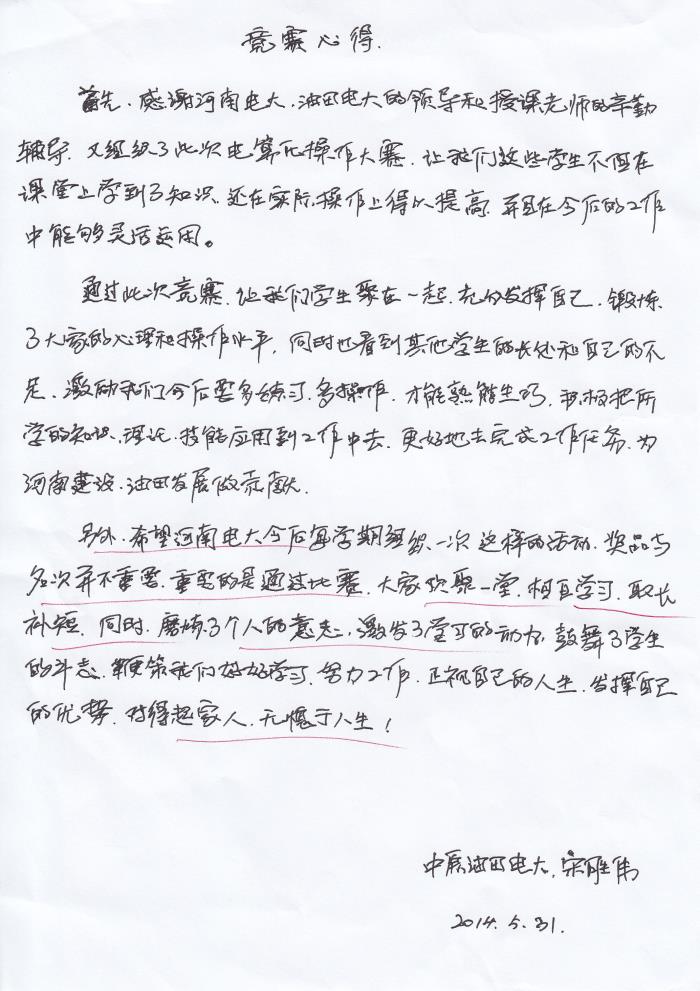 竞赛心得.
首先、感谢河南电大、油田电大的领导和授课老师的辛勤
辅导、又组织了此次电算化操作大赛、让我们这些学生不但在
课堂上学到了知识、还在实际操作上得以提高、并且在今后的工作
中能够灵活运用。
通过此次竞赛、让我们学生聚在一起、充分发挥自己、锻炼
了大家的心理和操作水平、同时也看到其他学生的长处和自己的不
足、激励我们今后要多练习、多操作、才能熟能生巧、积极把所
学的知识、理论、技能应用到工作中去、更好地去完成工作任务、为
河南建设、油田发展做贡献.
另外、希望河南电大今后每学期组织一次这样的活动、奖品与
名次并不重要、重要的是通过比赛、大家欢聚一堂、相互学习、取长
补短、同时、磨炼了个人的意志、激发了学习的动力、鼓舞了学生
的斗志、鞭策我们好好学习、努力工作、正视自己的人生、发挥自己
的优势、对得起家人、无愧于人生!
中原油田电大、宋胜伟
2014.5.31.